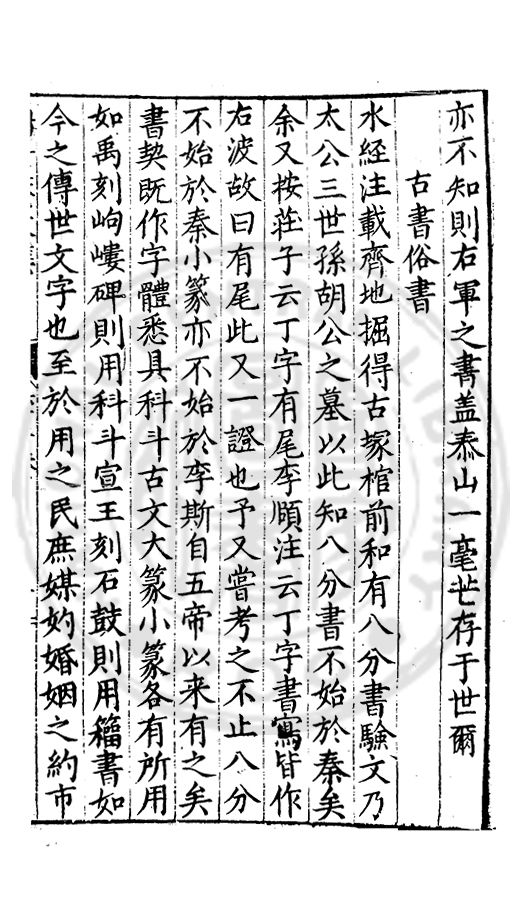 亦不知則右軍之書盖泰山一毫芒存于世爾
古書俗書
水經注載齊地掘得古塚棺前和有八分書驗文乃
太公三世孫胡公之墓以此知八分書不始於秦矣
余又按莊子云丁字有尾李頤注云丁字書寫皆作
右波故曰有尾此又一證也予又嘗考之不止八分
不始於秦小篆亦不始於李斯自五帝以来有之矣
書契既作字體悉具科斗古文大篆小篆各有所用
如禹刻岣嶁碑則用科斗宣王刻石鼓則用籀書如
今之傳世文字也至於用之民庶媒妁婚姻之約市